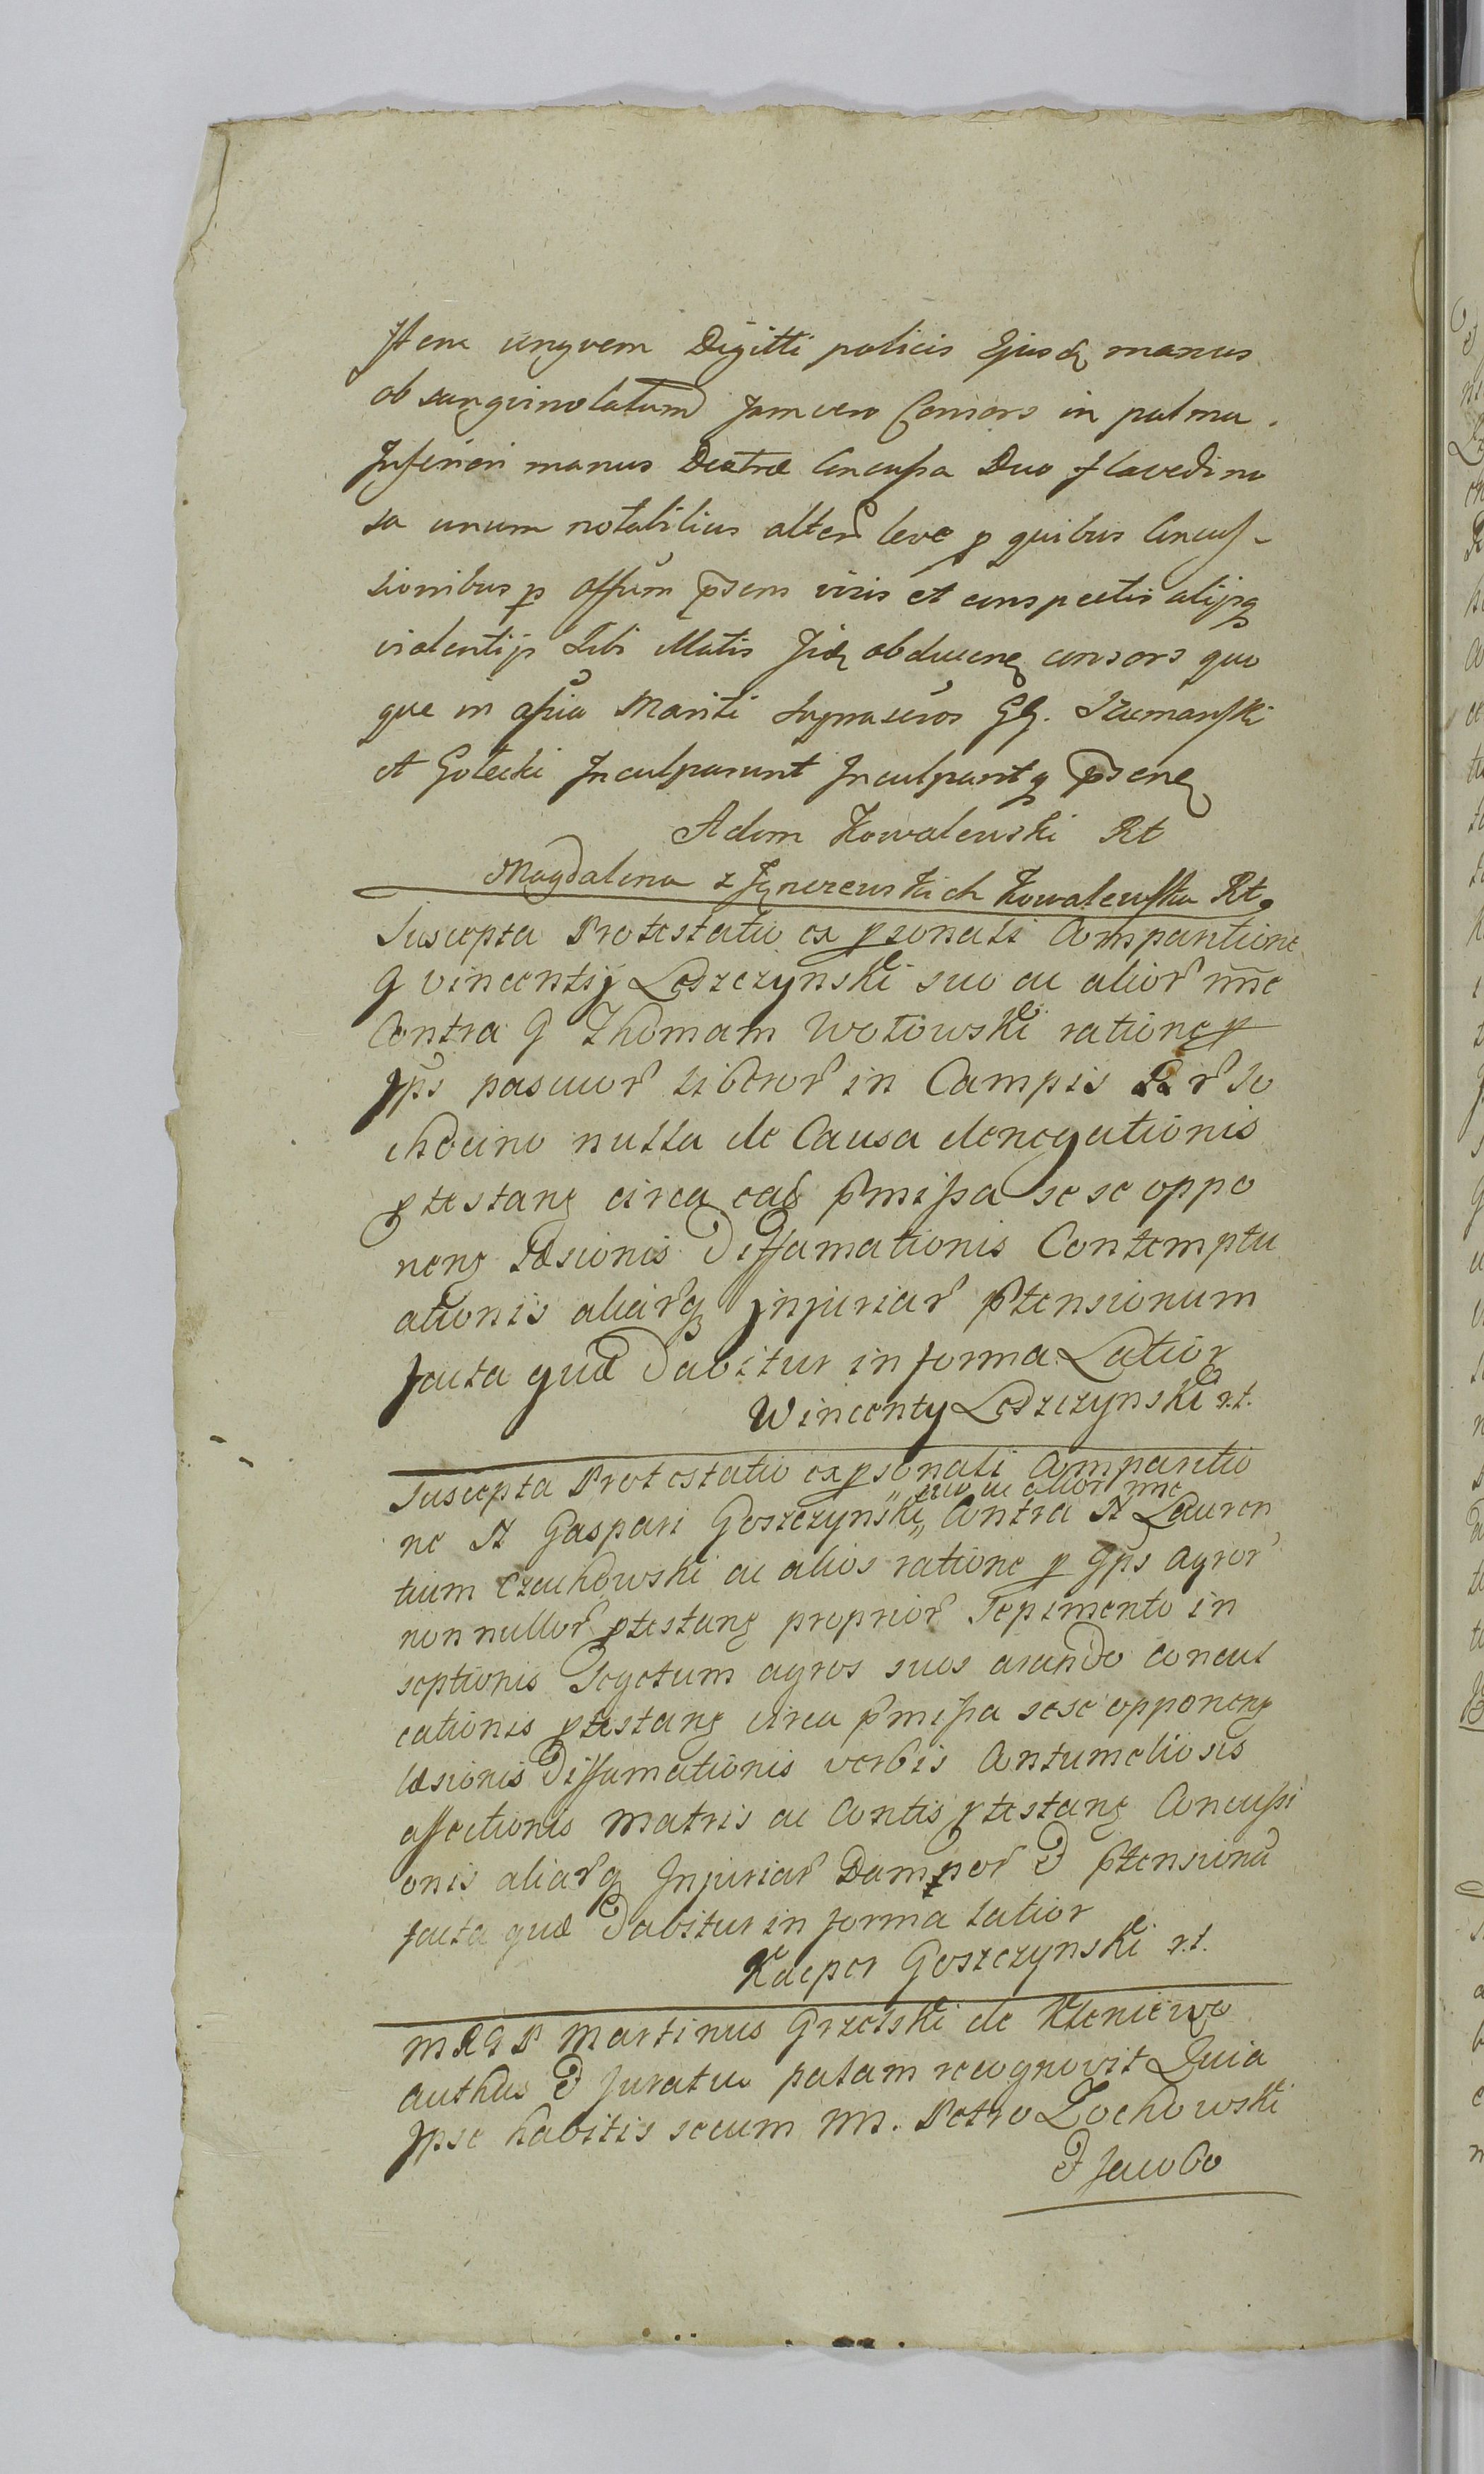 Item ungvem Digitti policis Ejusdq manus
ob sangvinolatum Jam vero Consors in palma
Inferiori manus Dextræ Concussa Duo flavedino
sa unum notabilius alterū leve p quibus Concus-
sionibus p Offum psens visis et conspectis alijsq
violentijs Sibi illatis obducenq consors quo
que in assia Mariti GG. Szumanski
et Golecki Inculparunt Inculpantq psenq
Adam Kowalewski Rt
Magdalena z Kowalewska Rt
Suscepta Protestatio ex psonali Comparitione
G Vincentij Leszczynski suo ac alior nne
Contra G Thomam Wotowski ratione p
Jps pascuor liberor in Campis
chocino nulla de Causa denegationis
ptestang circa ead pmissa sese oppo
neng Læsionis Diffamationis Contemptu
ationis aliarq Injuriar ptensionum
facta quæ Dabitur in forma Latior
Wincenty Leszczynski r.t.
Suscepta Protestatio ex psonali Comparitio
ne N Gaspari Goszczynski „suo ac alior nne„ Contra N Lauren
tium Czachowski ac alios ratione p Jps Agror
nonnullor ptestang proprior Sepimento in
septionis Segetum agros suos arando Concul
cationis ptestang circa pmissa sese opponeng
læsionis Diffamationis verbis Contumeliosis
affectionis Matris ac Contis ptestang Concussi
onis aliarq Injuriar Damnor & ptensionū
facta quæ Dabitur in forma latior
Kacper Goszczynski r.t.
M R G D Martinus Grzelski de Kleniewo
authus & Juratus palam recognovit Quia
Ipse habitis secum MM. Petro Zochowski
& Jacobo